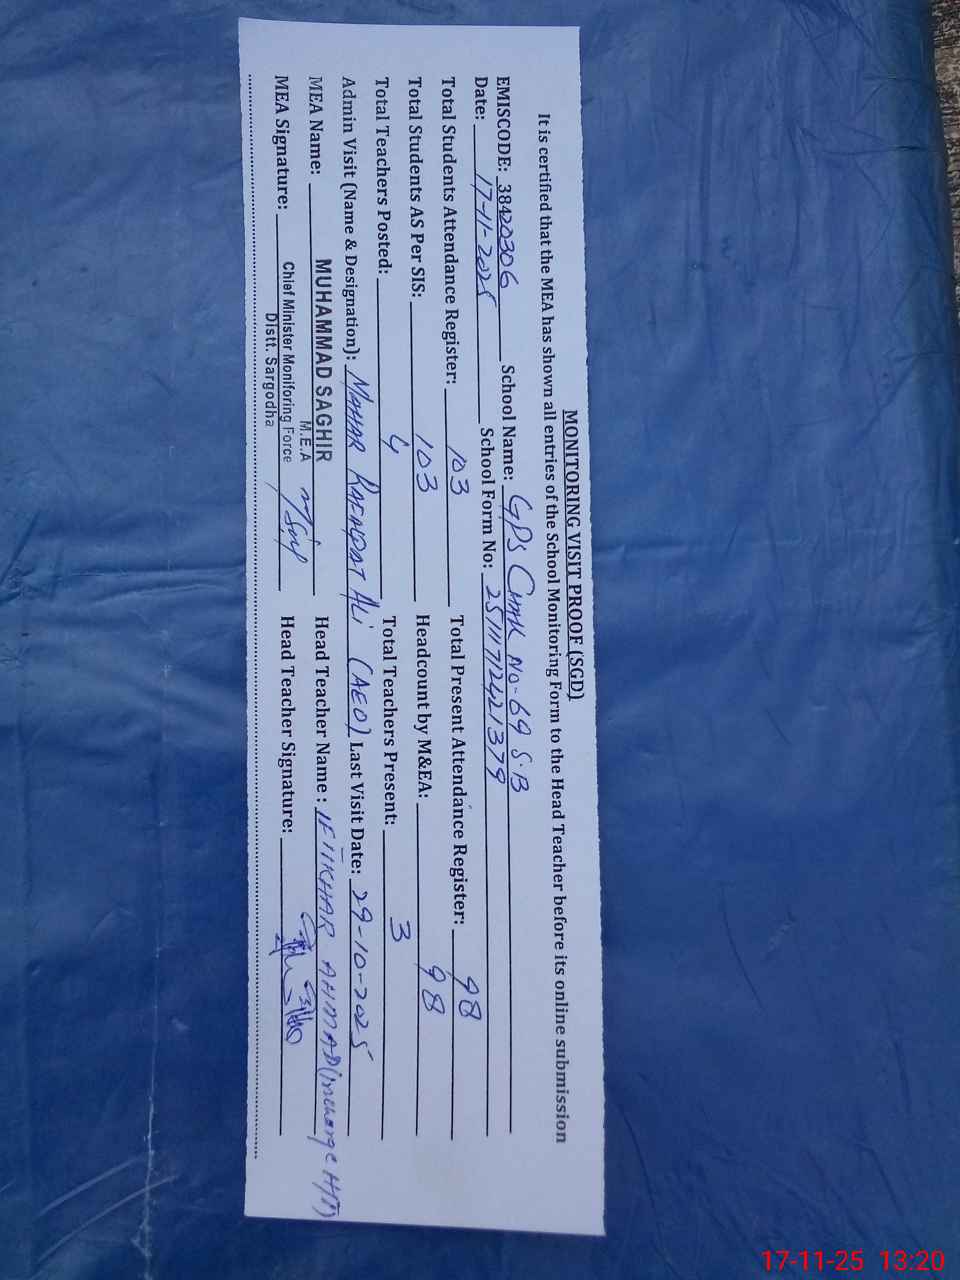 MONITORING VISIT PROOF (SGD)
It is certified that the MEA has shown all entries of the School Monitoring Form to the Head Teacher before its online submission
EMISCODE: 38420306 School Name: GPS Chak No-69 S.B
Date: 17-11-2025 School Form No: 25111712421379
Total Students Attendance Register: 103 Total Present Attendance Register: 98
Total Students AS Per SIS: 103 Headcount by M&EA: 98
Total Teachers Posted: 4 Total Teachers Present: 3
Admin Visit (Name & Designation): MAHAR RAFAQAT ALI (AEO) Last Visit Date: 29-10-2025
MEA Name: MUHAMMAD SAGHIR Head Teacher Name: IFTIKHAR AHMAD (Incharge H/T)
M.E.A
MEA Signature: Chief Minister Monitoring Force Head Teacher Signature:
Distt. Sargodha
17-11-25 13:20